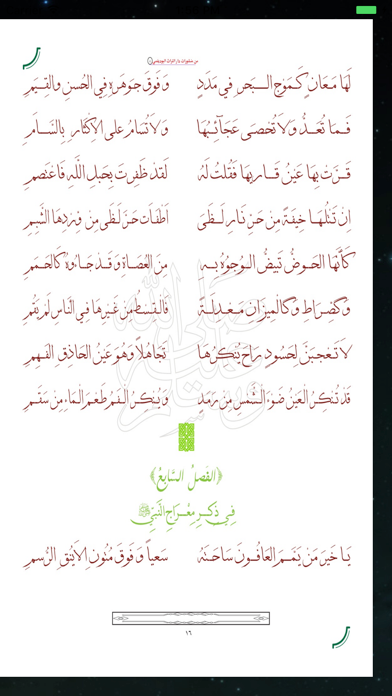 من منشورات دار التراث البودشيشي
لَهَا مَعَانٍ كَمَوْجِ الْبَحْرِ فِي مَدَدٍ وَفَوْقَ جَوْهَرِهِ فِي الْحُسْنِ وَالْقِيَمِ
فَمَا تُعَدُّ وَلَا تُحْصَى عَجَائِبُهَا وَلَا تُسَامُ عَلَى الْإِكْثَارِ بِالسَّأَمِ
قَرَّتْ بِهَا عَيْنُ قَارِيهَا فَقُلْتُ لَهُ لَقَدْ ظَفِرْتَ بِحَبْلِ اللَّهِ فَاعْتَصِمِ
إِنْ تَتْلُهَا خِيفَةً مِنْ حَرِّ نَارِ لَظَى أَطْفَأْتَ حَرَّ لَظَى مِنْ وِرْدِهَا الشَّبِمِ
كَأَنَّهَا الْحَوْضُ تَبْيَضُّ الْوُجُوهُ بِهِ مِنَ الْعُصَاةِ وَقَدْ جَاءُوهُ كَالْحُمَمِ
وَكَالصِّرَاطِ وَكَالْمِيزَانِ مَعْدِلَةً فَالْقِسْطُ مِنْ غَيْرِهَا فِي النَّاسِ لَمْ يَقُمِ
لَا تَعْجَبَنْ لِحَسُودٍ رَاحَ يُنْكِرُهَا تَجَاهُلًا وَهْوَ عَيْنُ الْحَاذِقِ الْفَهِمِ
قَدْ تُنْكِرُ الْعَيْنُ ضَوْءَ الشَّمْسِ مِنْ رَمَدٍ وَيُنْكِرُ الْفَمُ طَعْمَ الْمَاءِ مِنْ سَقَمِ
﴿الْفَصْلُ السَّابِعُ﴾
فِي ذِكْرِ مِعْرَاجِ النَّبِيِّ ﷺ
يَا خَيْرَ مَنْ يَمَّمَ الْعَافُونَ سَاحَتَهُ سَعْيًا وَفَوْقَ مُتُونِ الْأَيْنُقِ الرُّسُمِ
١٦